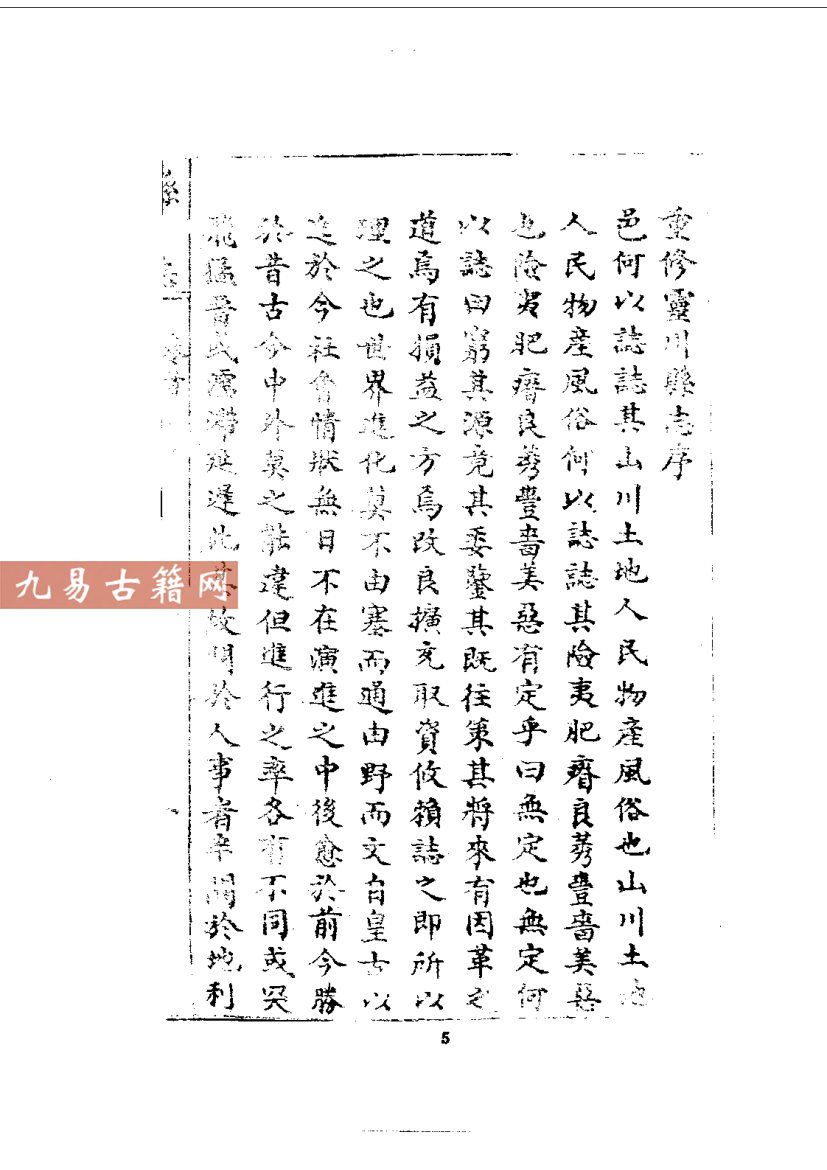 重修靈川縣志序
邑何以誌誌其山川土地人民物產風俗也山川土地
人民物產風俗何以誌誌其險夷肥瘠良莠豐嗇美惡
也險夷肥瘠良莠豐嗇美惡有定乎曰無定也無定何
以誌曰窮其源竟其委鑒其既往策其將來有因革之
道焉有損益之方焉改良擴充取資攸賴誌之即所以
理之也世界進化莫不由塞而通由野而文自皇古以
迄於今社會情狀無日不在演進之中後愈於前今勝
於昔古今中外莫之能違但進行之率各有不同或突
飛猛晉或濡滯延遲此其故明於人事者卒闇於地利
縣
志
卷首
九易古籍网
5